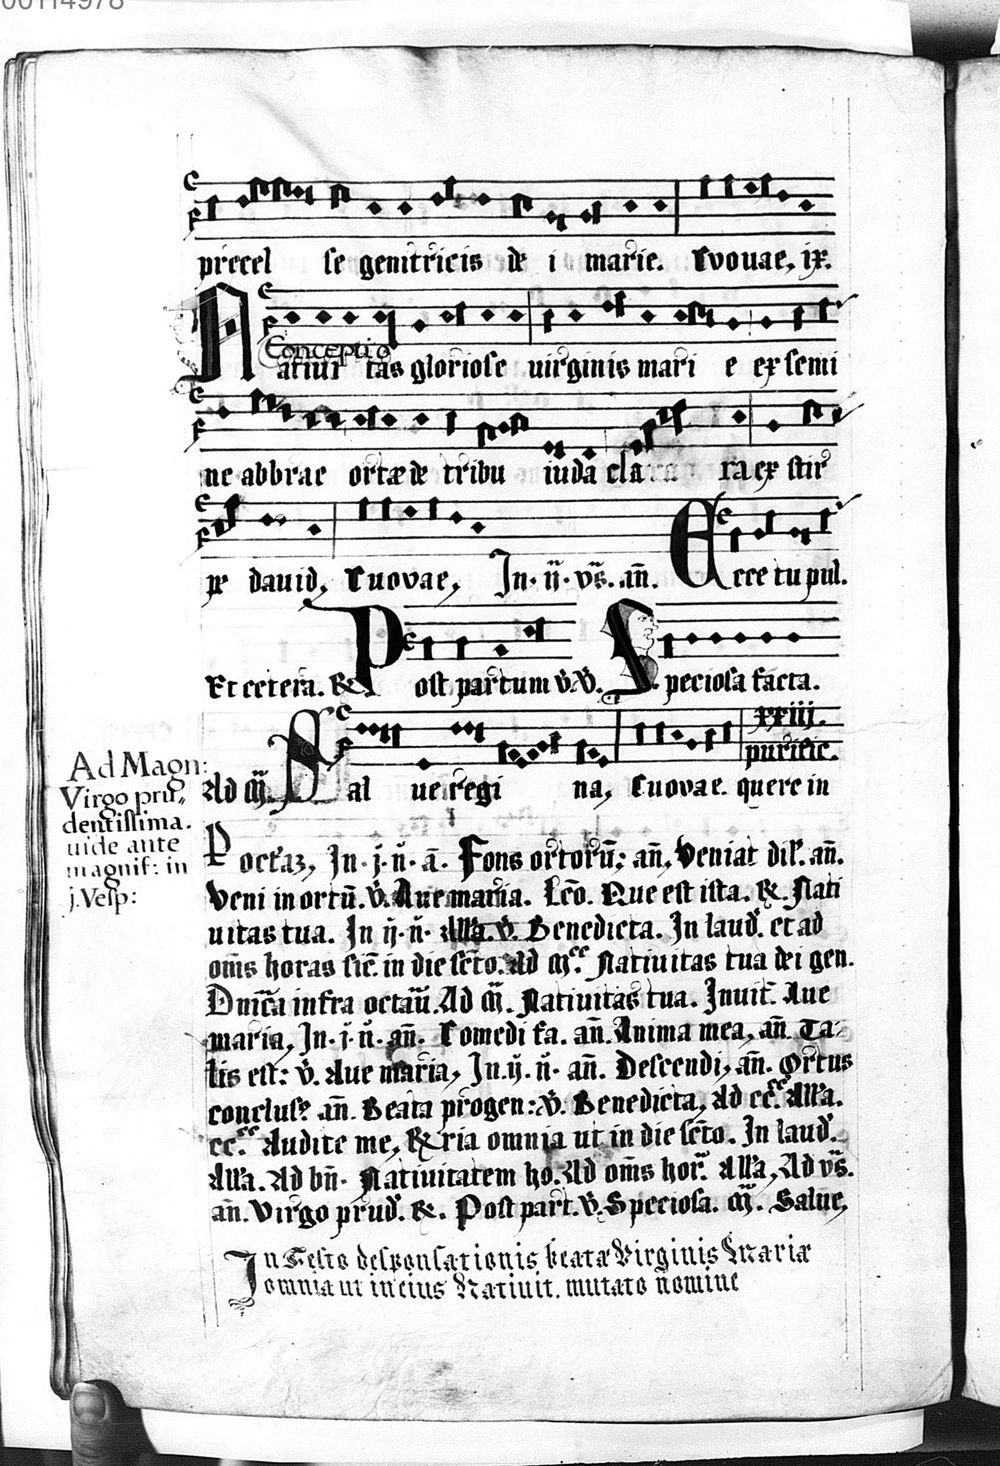 00114978
precel se genitricis dei marie. Evovae, ix.
Conceptio
Nativitas gloriose virginis marie ex semi
ne abbrae ortæ de tribu iuda clara ex stir
pe david, Euovae, In. ij. vs̃. añ. Ecce tu pul.
Et cetera. ℟ Post partum v̄. v̄. Speciosa facta.
xxiij.
purific.
Ad m̃. Salue regina, Euovae. quere in
Ad Magn:
Virgo pru-
dentissima.
uide ante
magnif: in
j. Vesp:
P octãz, In. j. ñ. ã. Fons ortorũ: añ, Veniat dil. añ.
Veni in ortũ. v̄. Aue maria. Lcõ. Que est ista. ℟. Nati
uitas tua. In ij. ñ. Alľa. v̄. Benedicta. In laud. et ad
om̃s horas sic̃. in die sc̃to. Ad m̃. Natiuitas tua dei gen.
Dñica infra octau. Ad m̃. Natiuitas tua. Inuit. Aue
maria, In. j. ñ. añ. Comedi fa. añ. Anima mea, añ. Ta-
lis est: v̄. Aue maria, In. ij. ñ. añ. Descendi, añ. Ortus
conclus? añ. Beata progen: v̄. Benedicta, Ad cc. Alľa.
cc. Audite me, ℟ria omnia ut in die sc̃to. In laud.
Alľa. Ad bñ. Natiuitatem ho. Ad om̃s hor. Alľa, Ad vs̃.
añ. Virgo prud. ℟. Post part. v̄. Speciosa. m̃. Salue,
In Festo desponsationis beatæ Virginis Mariæ
omnia ut in eius Natiuit. mutato nomine